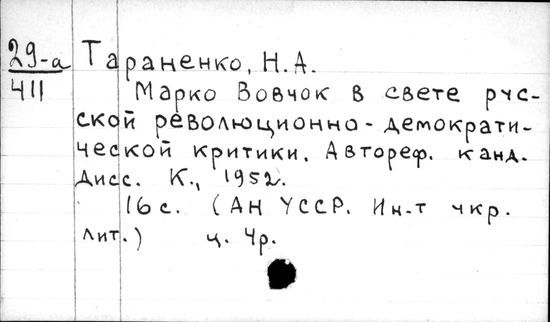 29-а Тараненко, Н.А.
411 Марко Вовчок в свете рус-
ской революционно-демократи-
ческой критики. Автореф. канд.
дисс. К., 1952.
16 с. (АН УССР. Ин-т укр.
лит.) ц. 4р.